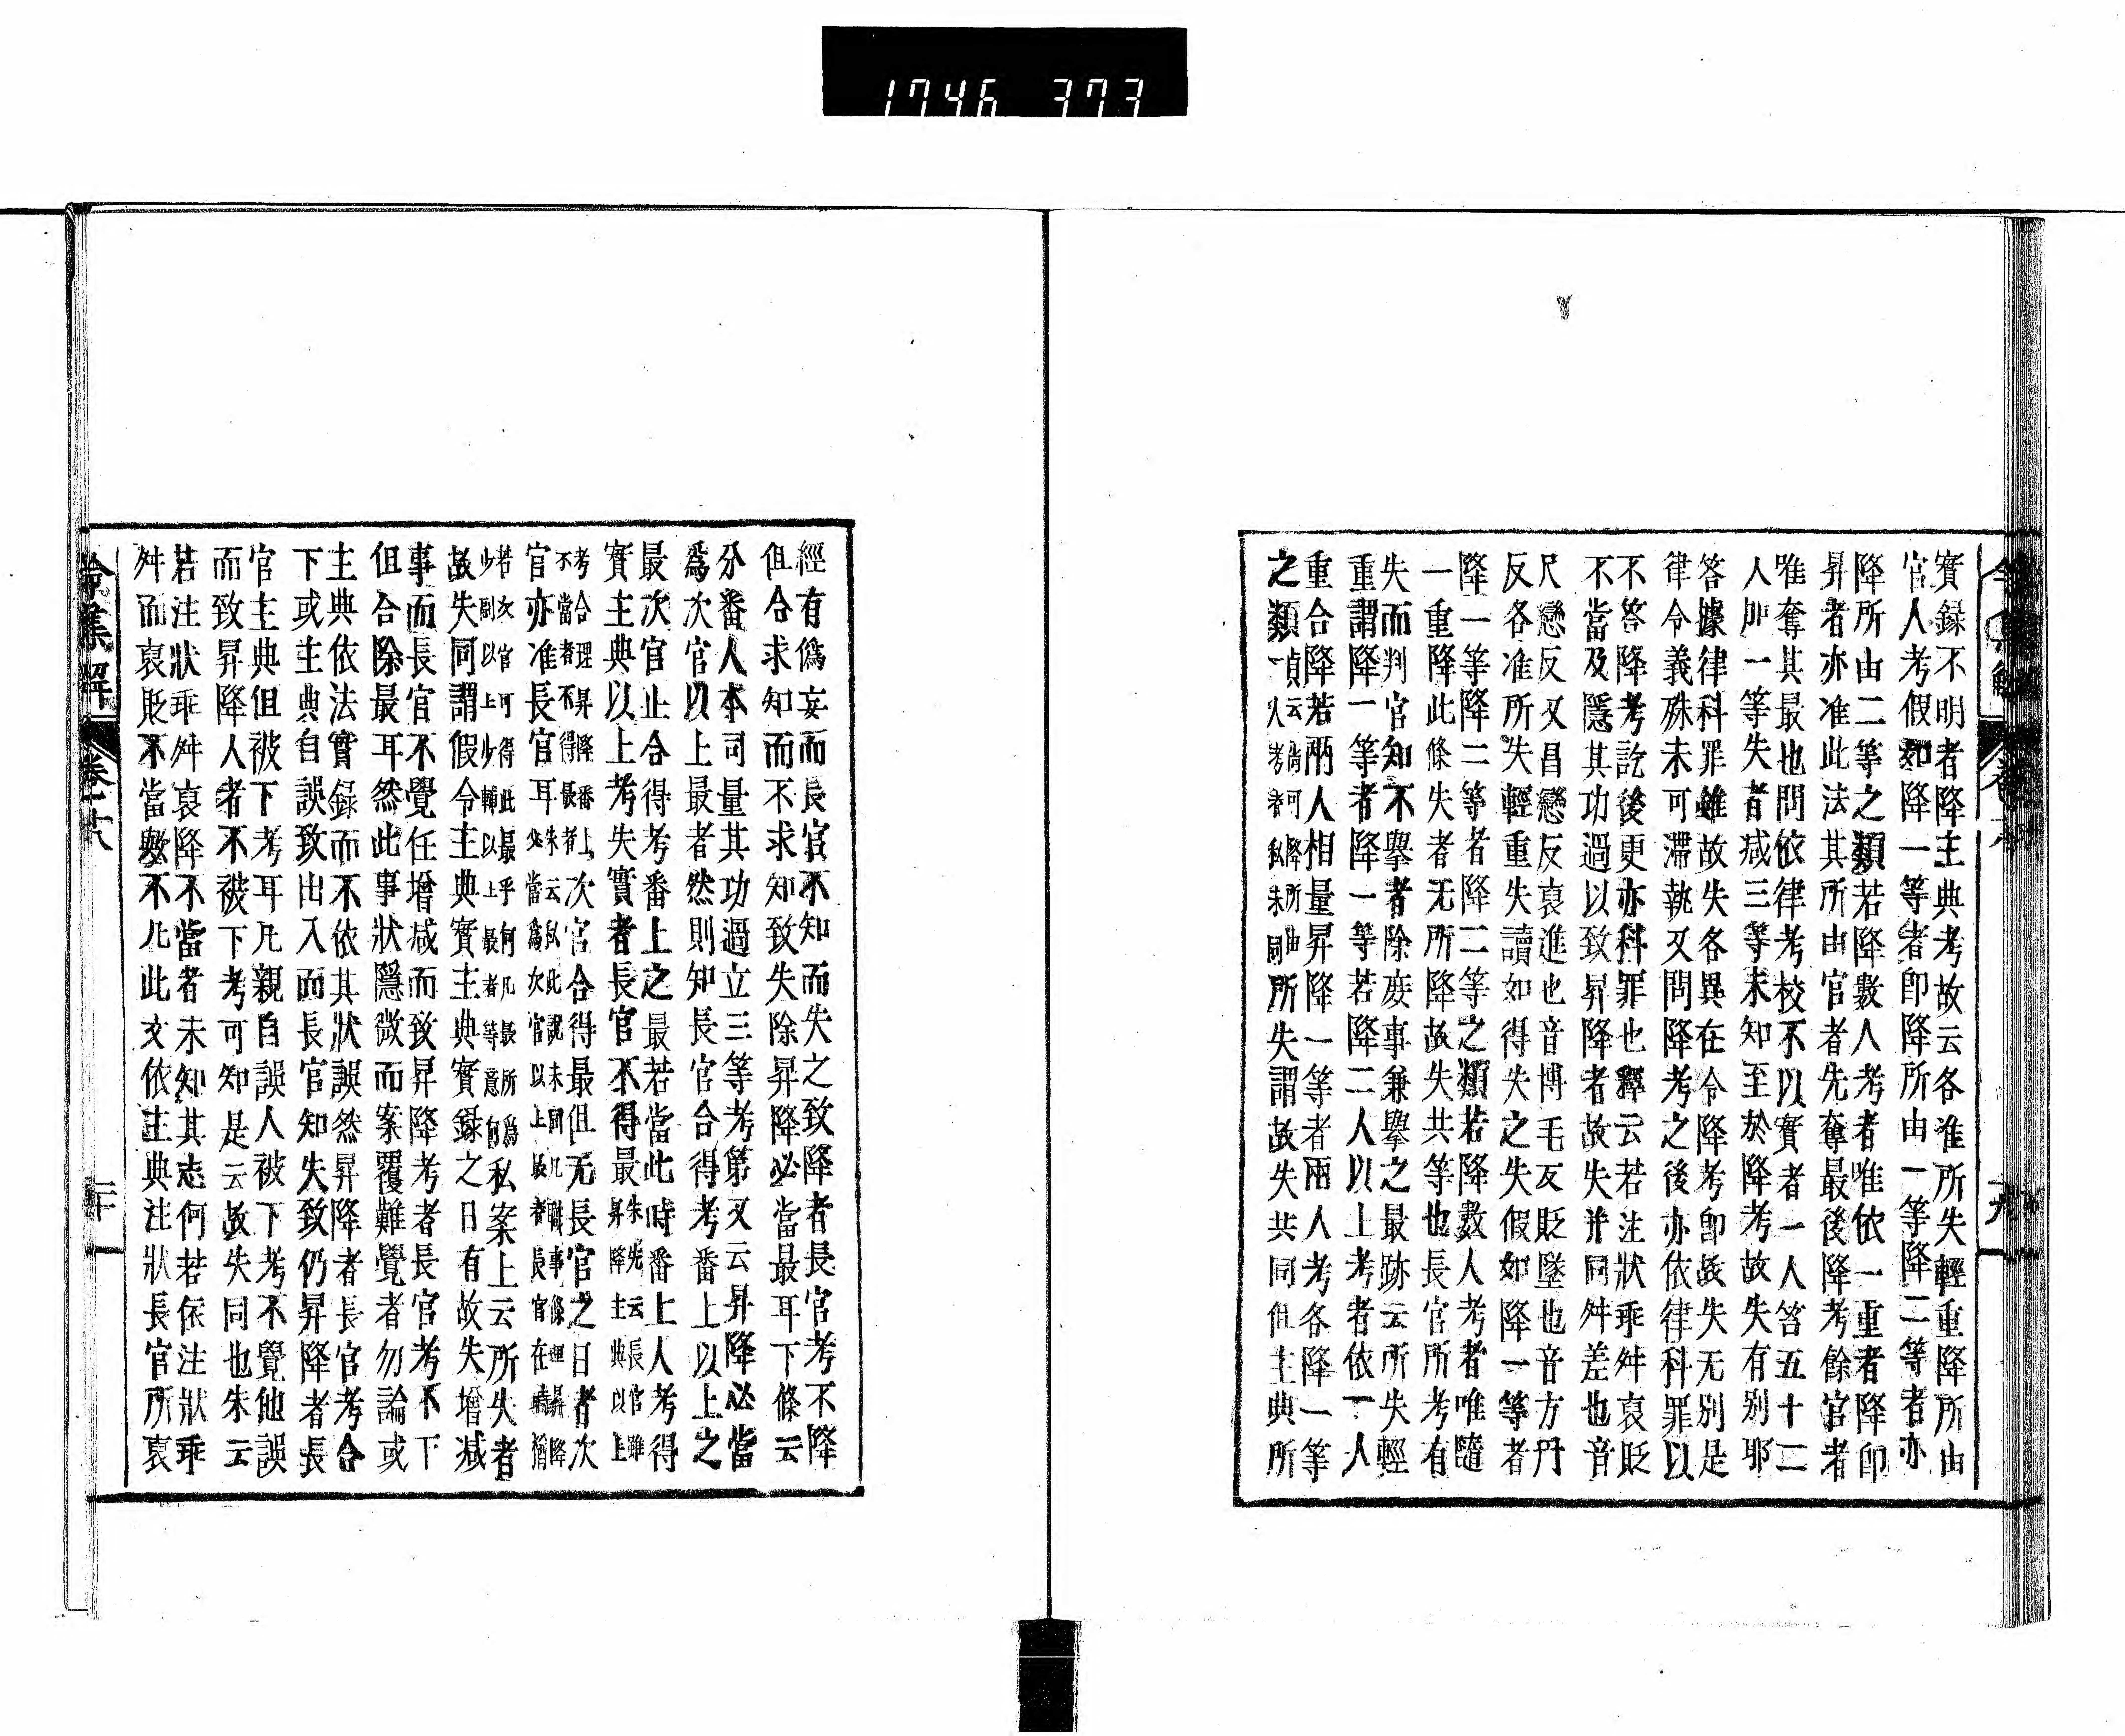 1746 373
實録不明者降主典考故云各准所失輕重降所由
官人考假如降一等者卽降所由一等降二等者亦
降所由二等之類若降數人考者唯依一重者降卽
昇者亦准此法其所由官者先奪最後降考餘官者
唯奪其最也問依律考校不以實者一人笞五十二
人加一等失者减三等未知至於降考故失有別耶
答據律科罪雖故失各異在令降考卽故失无別是
律令義殊未可滯執又問降考之後亦依律科罪以
不答降考訖後更亦科罪也釋云若注狀乖舛裒貶
不當及隱其功過以致昇降者故失并同舛差也音
尺戀反又昌戀反裒進也音博毛反貶墜也音方丹
反各准所失輕重失讀如得失之失假如降一等者
降一等降二等者降二等之類若降數人考者唯隨
一重降此條失者无所降故失共等也長官所考有
失而判官知不擧者除庋事兼擧之最跡云所失輕
重謂降一等者降一等若降二人以上考者依一人
重合降若兩人相量昇降一等者兩人考各降一等
之類 所失謂故失共同但主典所
經有僞妄而長官不知而失之致降者長官考不降
但合求知而不求知致失除昇降必當最耳下條云
分番人本司量其功過立三等考第又云昇降必當
爲次官以上最者然則知長官合得考番上以上之
最次官止合得考番上之最若當此時番上人考得
實主典以上考失實者長官不得最朱先云長官雖
昇降主典以上
考合理昇降番上
不當者不得最者次官合得最但无長官之日者次
官亦准長官耳
若次官可得此最乎何凡最所爲
少副以上少輔以上最者等意何私案上云所失者
故失同謂假令主典實主典實録之日有故失增减
事而長官不覺任增减而致昇降考者長官考不下
但合除最耳然此事狀隱微而案覆難覺者勿論或
主典依法實録而不依其狀誤然昇降者長官考合
下或主典自誤致出入而長官知失致仍昇降者長
官主典但被下考耳凡親自誤人被下考不覺他誤
而致昇降人者不被下考可知是云故失同也朱云
若注狀乖舛裒降不當者未知其志何若依注狀乖
舛而裒貶不當數不凡此文依主典注狀長官所裒
令集解 卷十八 二十